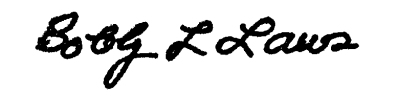 Bobby L Laws